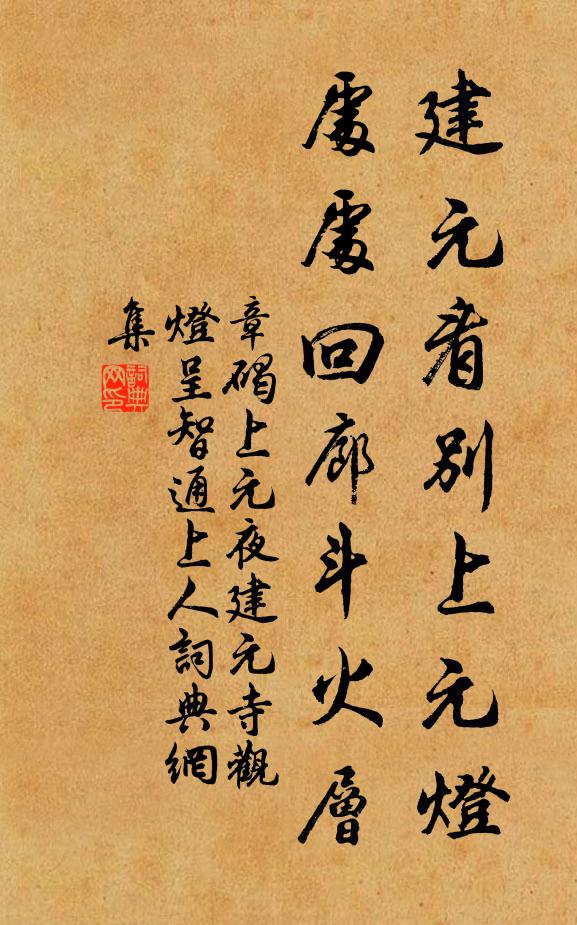 建元看別上元燈
處處回廊斗火層
章碣上元夜建元寺觀
燈呈智通上人詞典網
集
詞典網印